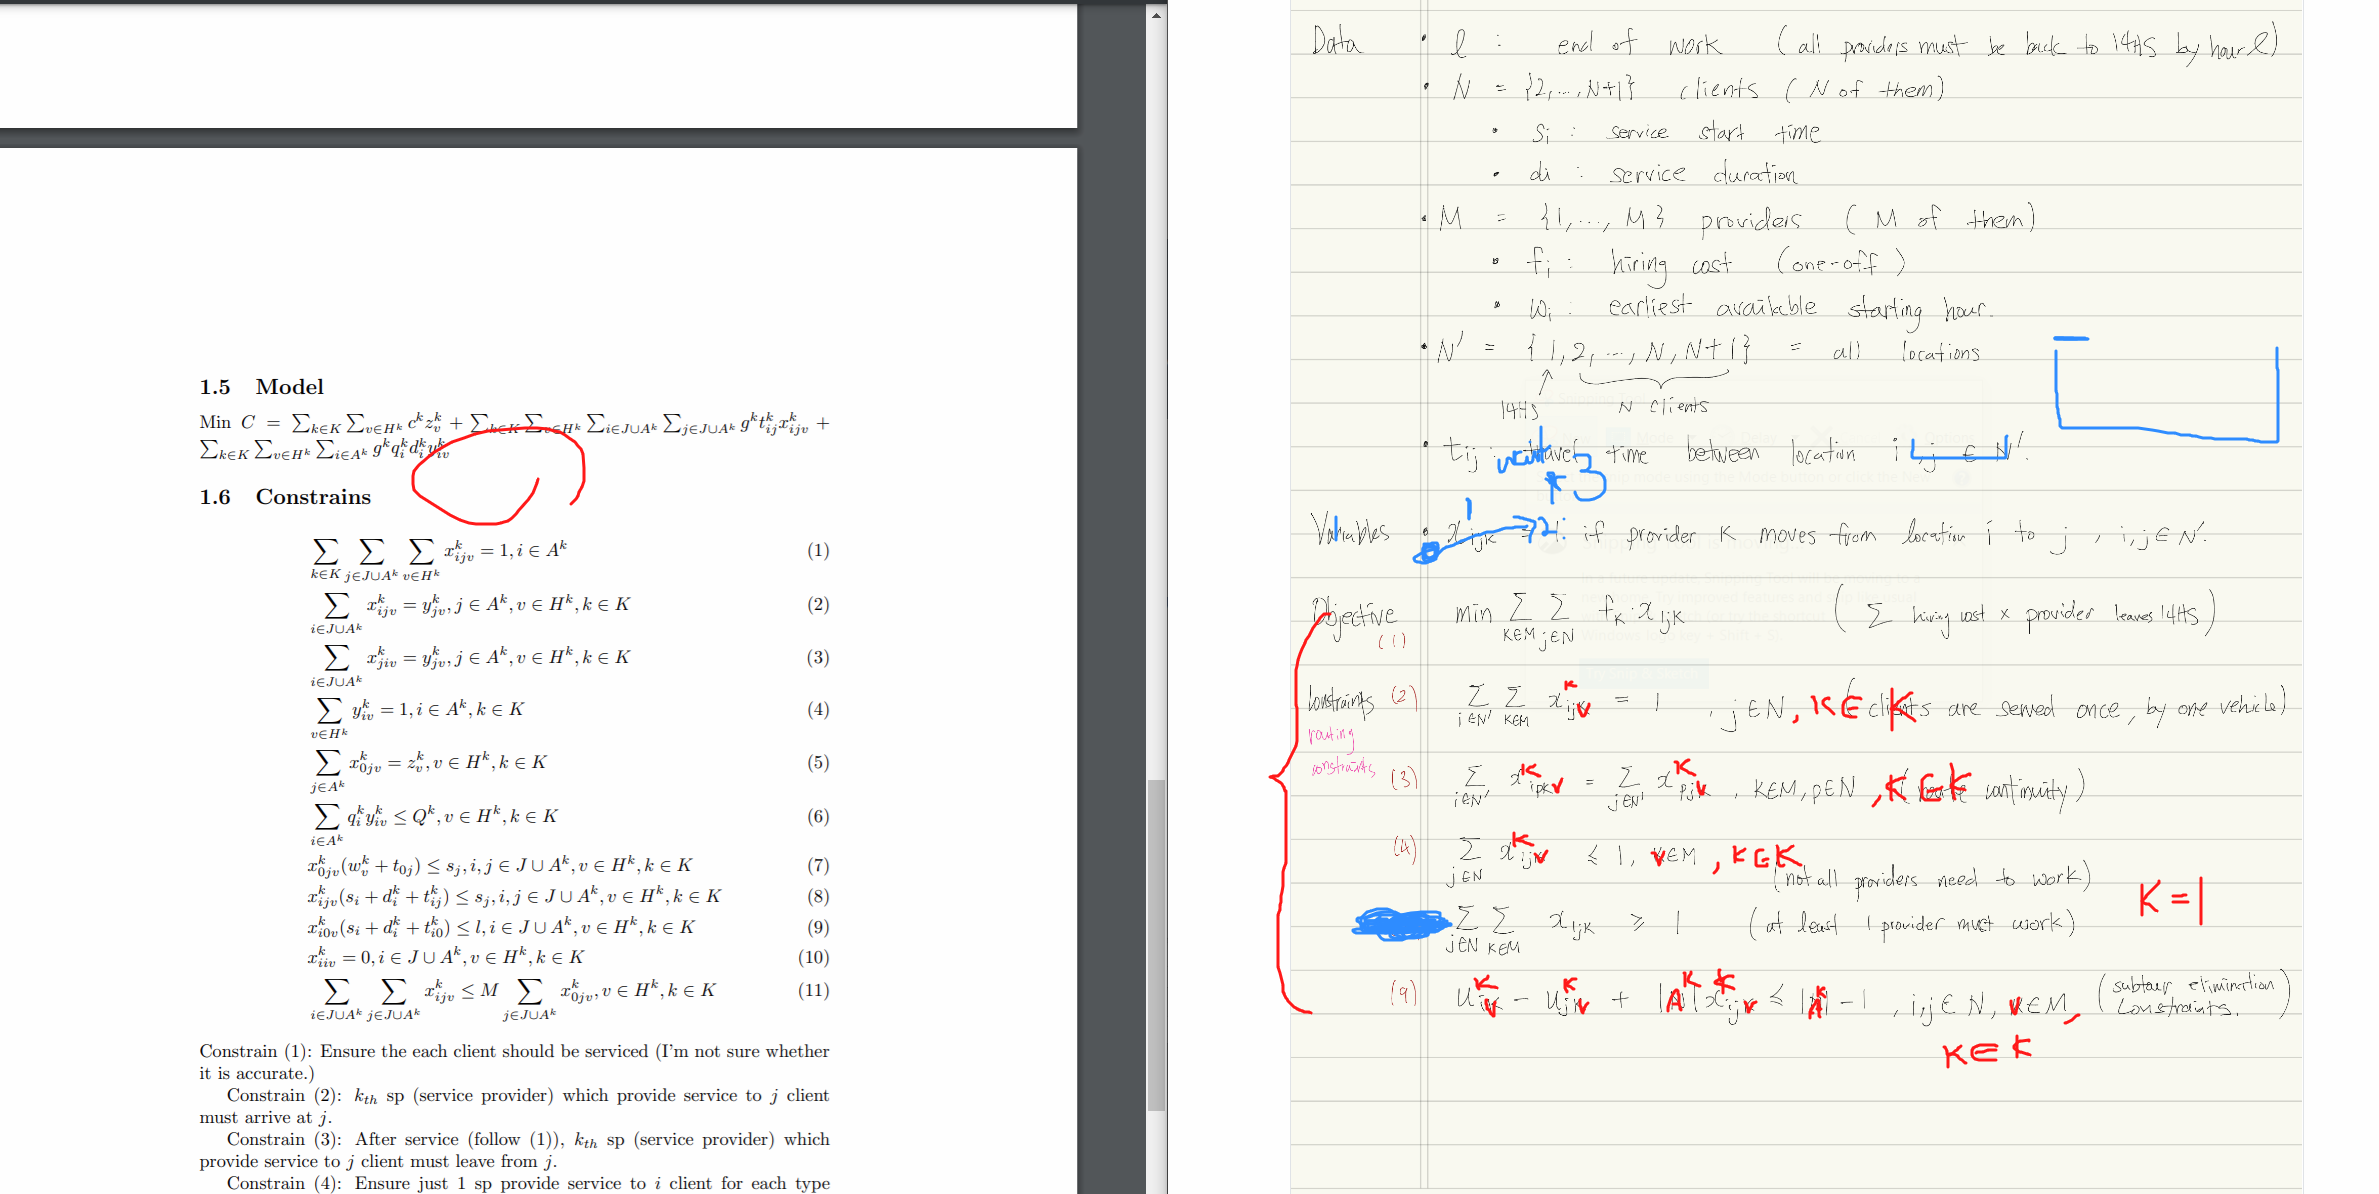 1.5 Model
Min C = ∑_{k∈K} ∑_{v∈H^k} c^k z_v^k + ∑_{k∈K} ∑_{v∈H^k} ∑_{i∈J∪A^k} ∑_{j∈J∪A^k} g^k t_{ij}^k x_{ijv}^k +
∑_{k∈K} ∑_{v∈H^k} ∑_{i∈A^k} g^k q_i^k d_i^k y_{iv}^k
1.6 Constrains
∑_{k∈K} ∑_{j∈J∪A^k} ∑_{v∈H^k} x_{ijv}^k = 1, i ∈ A^k (1)
∑_{i∈J∪A^k} x_{ijv}^k = y_{jv}^k, j ∈ A^k, v ∈ H^k, k ∈ K (2)
∑_{i∈J∪A^k} x_{jiv}^k = y_{jv}^k, j ∈ A^k, v ∈ H^k, k ∈ K (3)
∑_{v∈H^k} y_{iv}^k = 1, i ∈ A^k, k ∈ K (4)
∑_{j∈A^k} x_{0jv}^k = z_v^k, v ∈ H^k, k ∈ K (5)
∑_{i∈A^k} q_i^k y_{iv}^k ≤ Q^k, v ∈ H^k, k ∈ K (6)
x_{0jv}^k (w_v^k + t_{0j}) ≤ s_j, i, j ∈ J ∪ A^k, v ∈ H^k, k ∈ K (7)
x_{ijv}^k (s_i + d_i^k + t_{ij}^k) ≤ s_j, i, j ∈ J ∪ A^k, v ∈ H^k, k ∈ K (8)
x_{i0v}^k (s_i + d_i^k + t_{i0}^k) ≤ l, i ∈ J ∪ A^k, v ∈ H^k, k ∈ K (9)
x_{iiv}^k = 0, i ∈ J ∪ A^k, v ∈ H^k, k ∈ K (10)
∑_{i∈J∪A^k} ∑_{j∈J∪A^k} x_{ijv}^k ≤ M ∑_{j∈J∪A^k} x_{0jv}^k, v ∈ H^k, k ∈ K (11)
Constrain (1): Ensure the each client should be serviced (I'm not sure whether
it is accurate.)
Constrain (2): k_{th} sp (service provider) which provide service to j client
must arrive at j.
Constrain (3): After service (follow (1)), k_{th} sp (service provider) which
provide service to j client must leave from j.
Constrain (4): Ensure just 1 sp provide service to i client for each type
Data • l : end of work (all providers must be back to 14HS by hour l)
• N = {2,...,N+1} clients (N of them)
• s_i : service start time
• d_i : service duration
• M = {1,..., M} providers (M of them)
• f_i : hiring cost (one-off)
• w_i : earliest available starting hour.
• N' = {1,2,...,N,N+1} = all locations
14HS N clients
• t_{ij} : travel time between location i, j ∈ N'.
* 3
1
Variables • x_{ijk} = 1: if provider k moves from location i to j, i,j ∈ N'.
Objective min ∑_{k∈M} ∑_{j∈N} f_k · x_{1jk} (∑ hiring cost x provider leaves 14HS)
(1)
Constraints (2) ∑_{i∈N'} ∑_{k∈M} x_{ijv}^k = 1, j∈N, k∈K (clients are served once, by one vehicle)
routing
constraints (3) ∑_{i∈N'} x_{ipkv}^k = ∑_{j∈N'} x_{pjv}^k, k∈M, p∈N, k∈K (route continuity)
(4) ∑_{j∈N} x_{1jv}^k ≤ 1, v∈M, k∈K
(not all providers need to work)
K=1
∑_{j∈N} ∑_{k∈M} x_{1jk} ≥ 1 (at least 1 provider must work)
(9) u_{iv}^k − u_{jv}^k + |A^k| x_{ijv}^k ≤ |A^k| − 1, i,j ∈ N, v∈M, (subtour elimination
constraints.)
k∈K